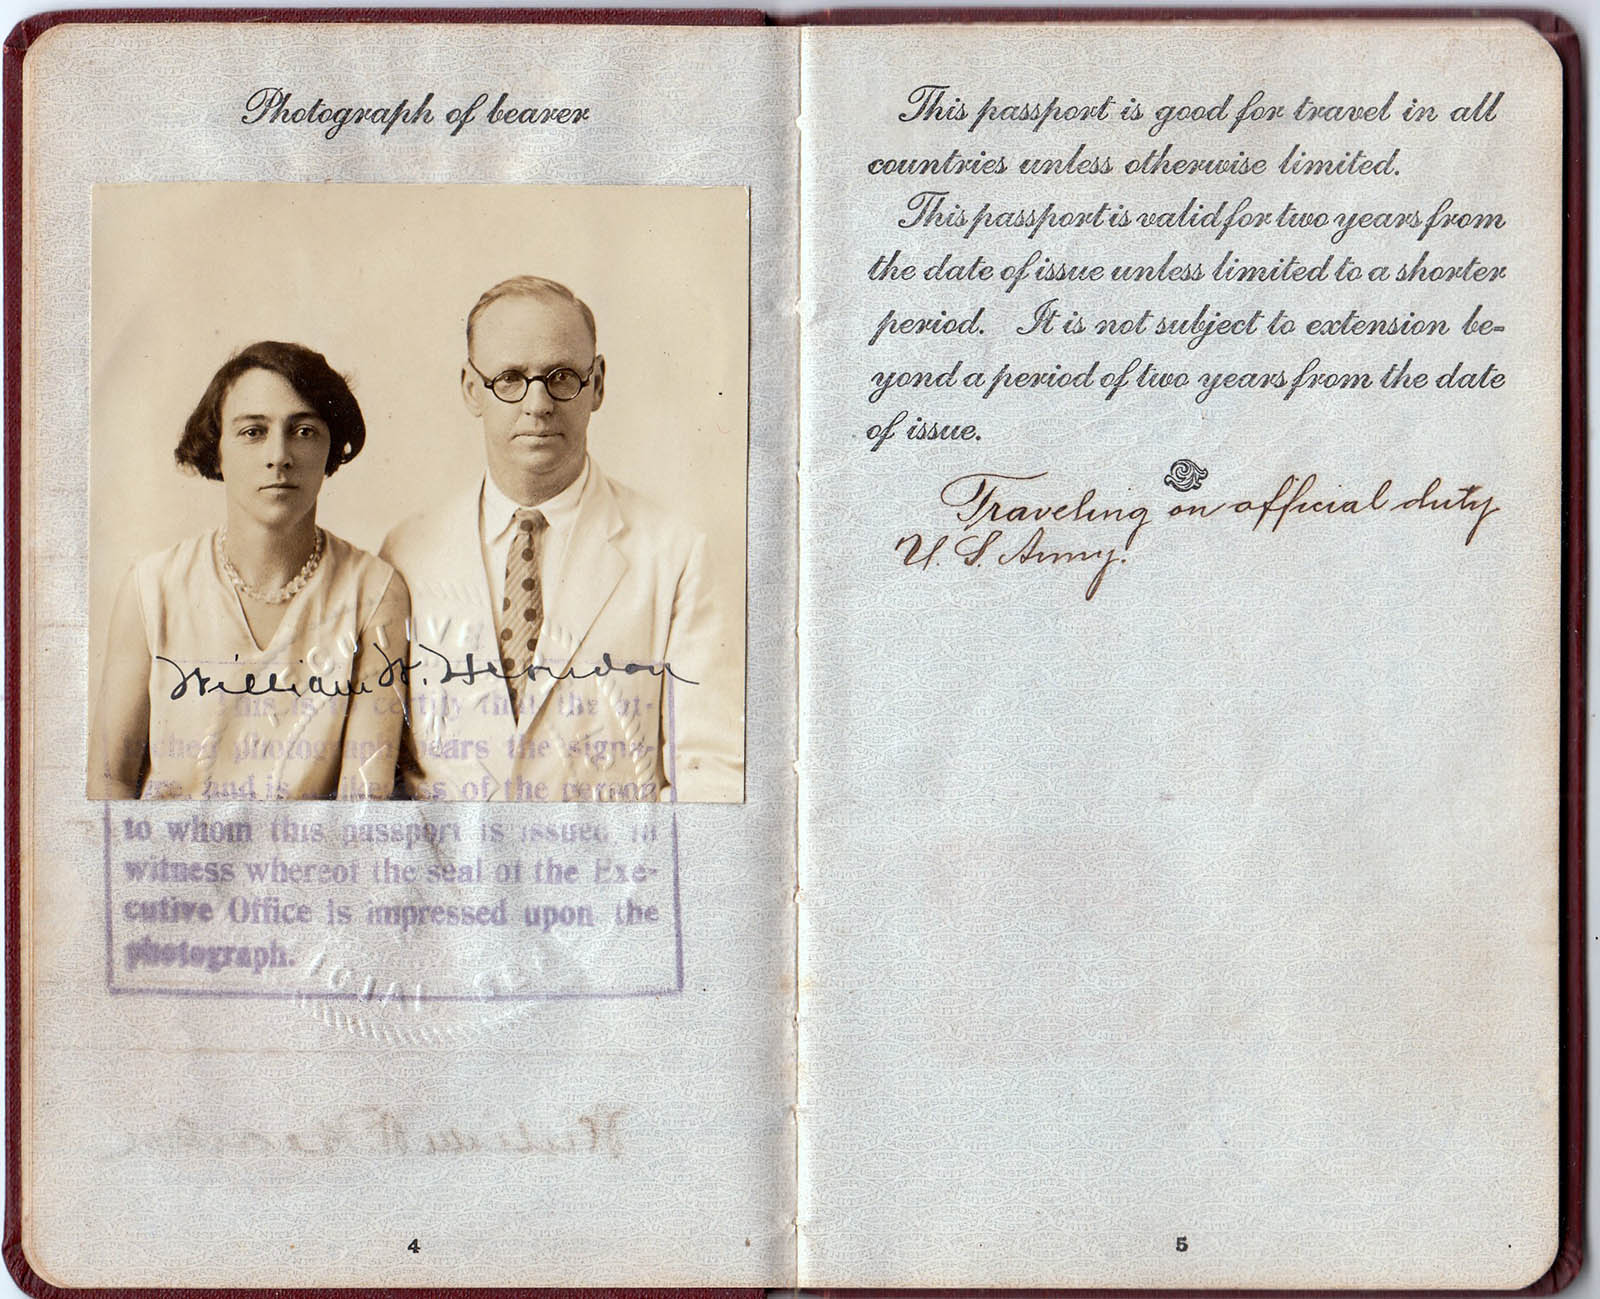 Photograph of bearer
William W. Herndon
This is to certify that the at-
tached photograph bears the signa-
ture, and is a likeness of the person
to whom this passport is issued in
witness whereof the seal of the Exe-
cutive Office is impressed upon the
photograph.
4
This passport is good for travel in all
countries unless otherwise limited.
This passport is valid for two years from
the date of issue unless limited to a shorter
period. It is not subject to extension be-
yond a period of two years from the date
of issue.
Traveling on official duty
U. S. Army.
5